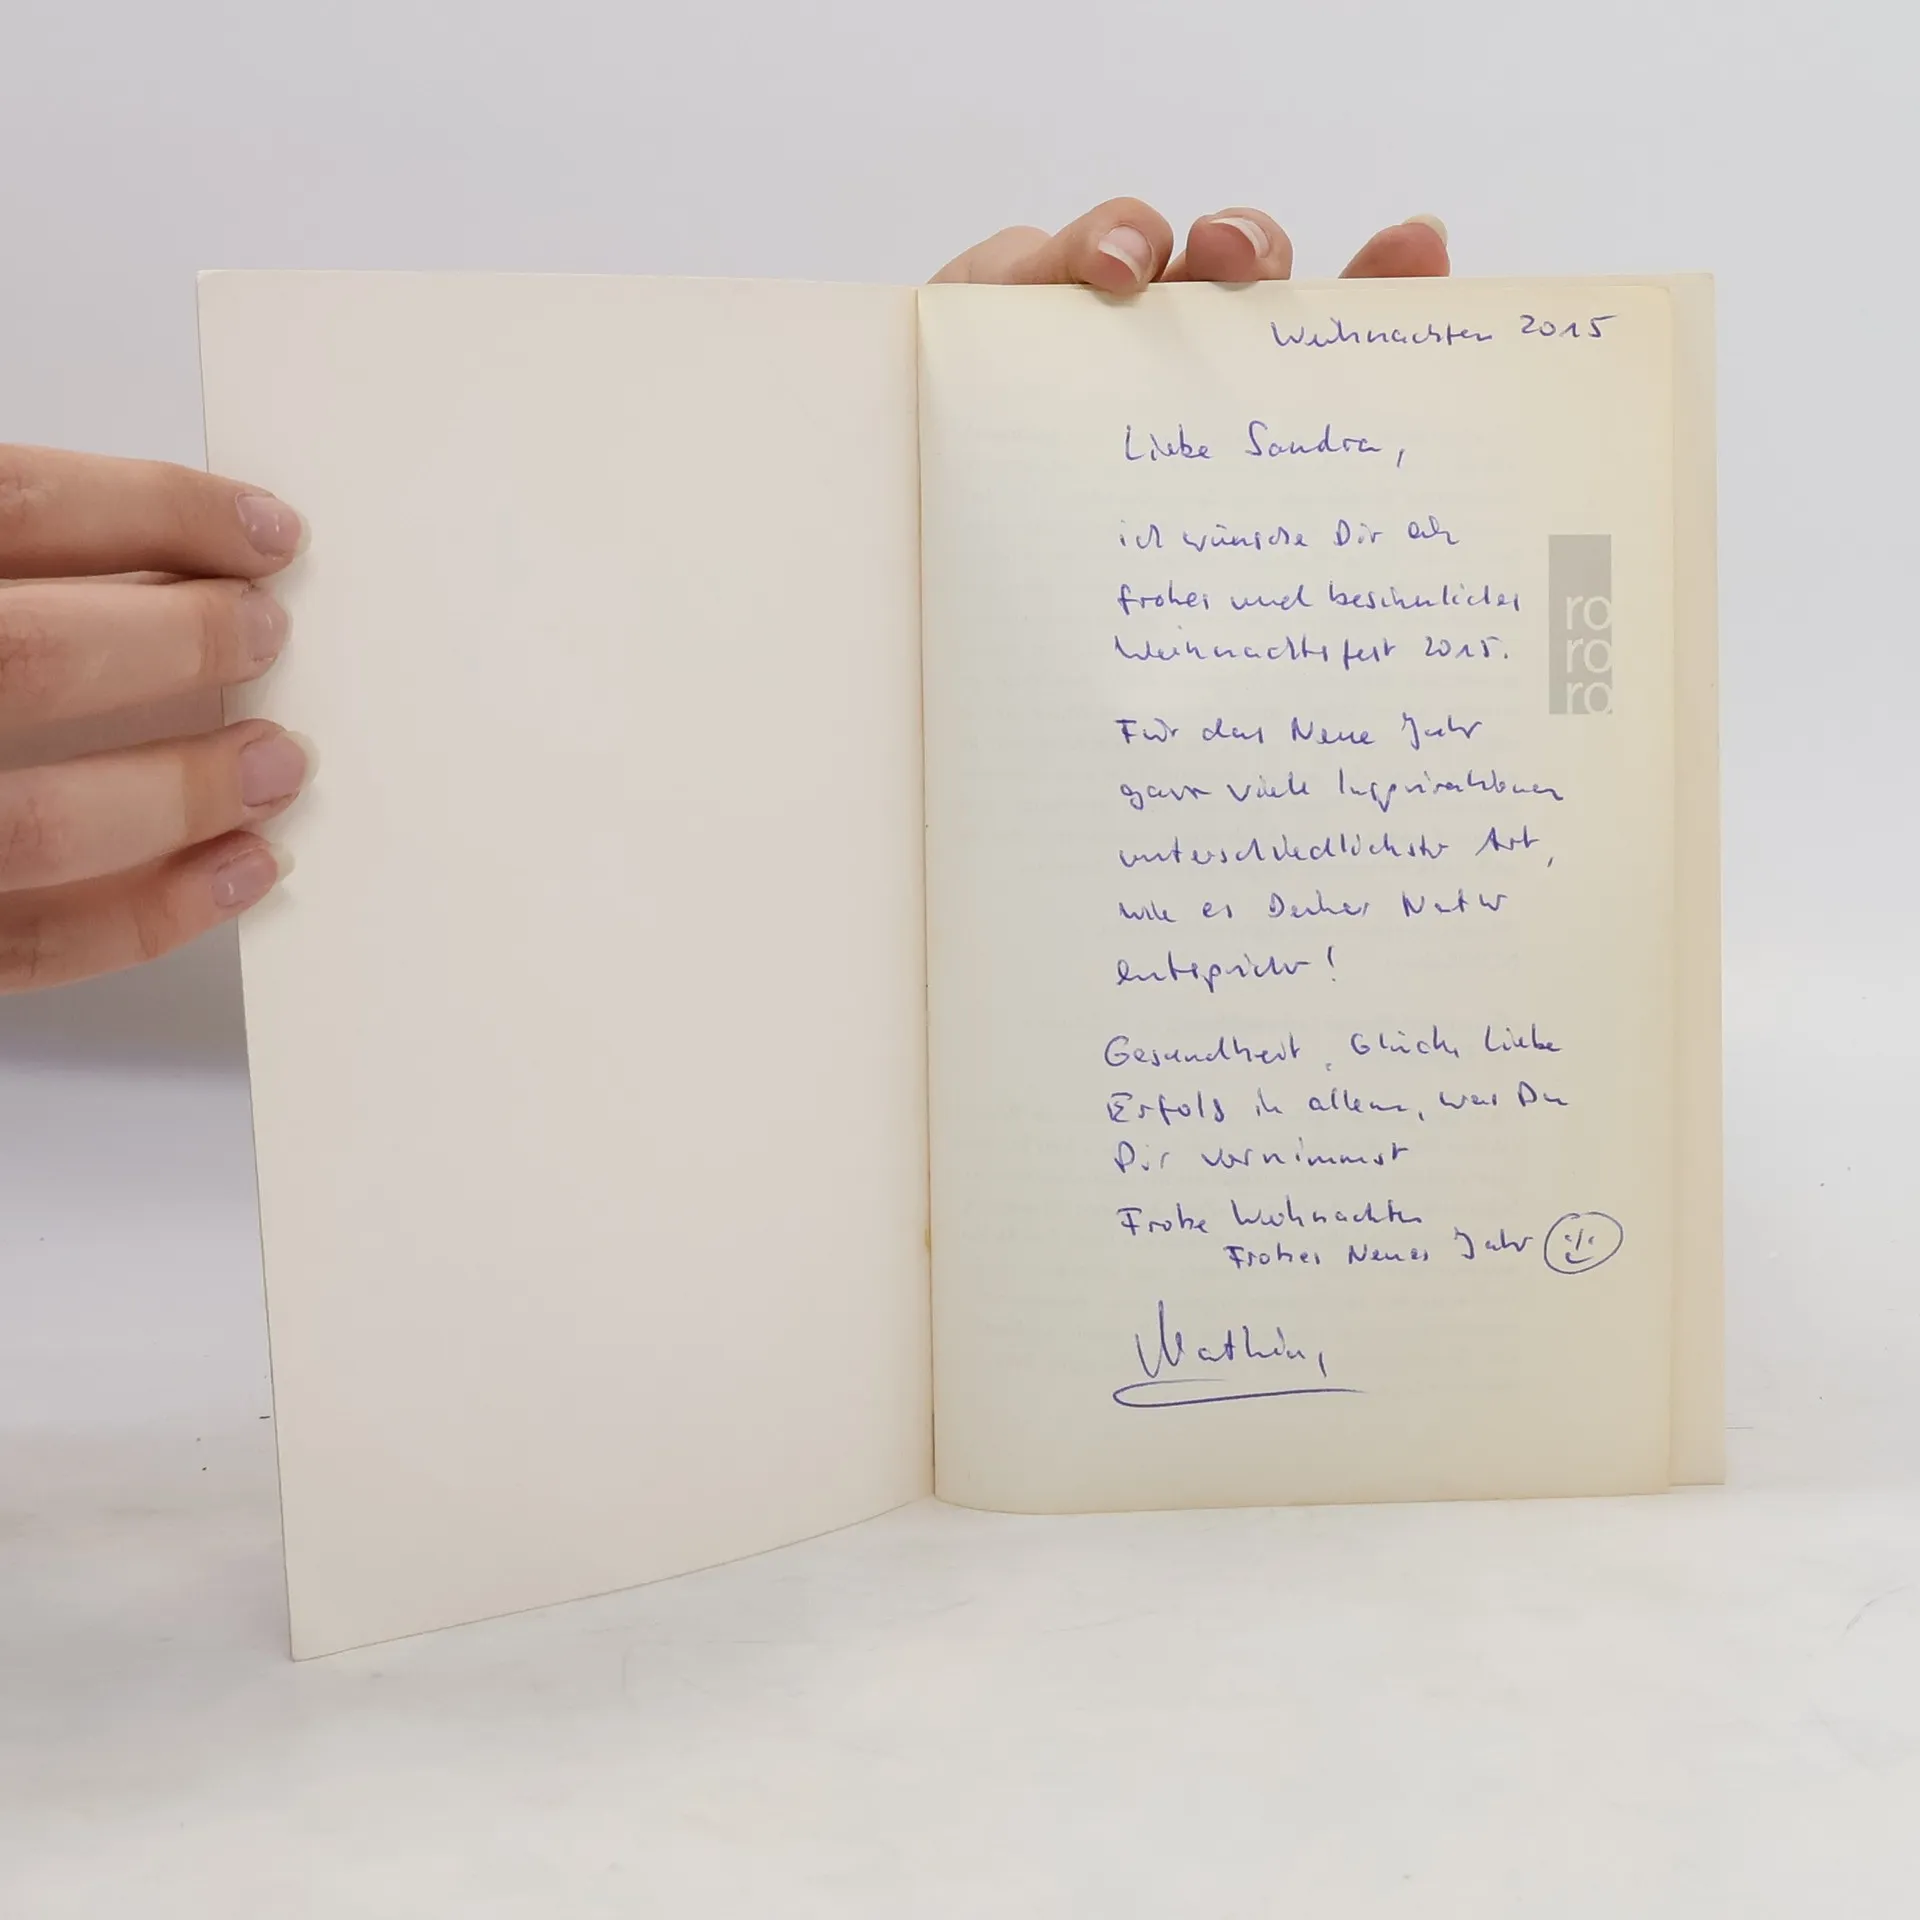 Weihnachten 2015
Liebe Sandra,
ich wünsche Dir ein
frohes und besinnliches
Weihnachtsfest 2015.
Für das Neue Jahr
ganz viele Inspirationen
unterschiedlichster Art,
wie es Deiner Natur
entspricht!
Gesundheit, Glück, Liebe
Erfolg in allem, was Du
Dir vornimmst
Frohe Weihnachten
Frohes Neues Jahr
Mathias
ro
ro
ro